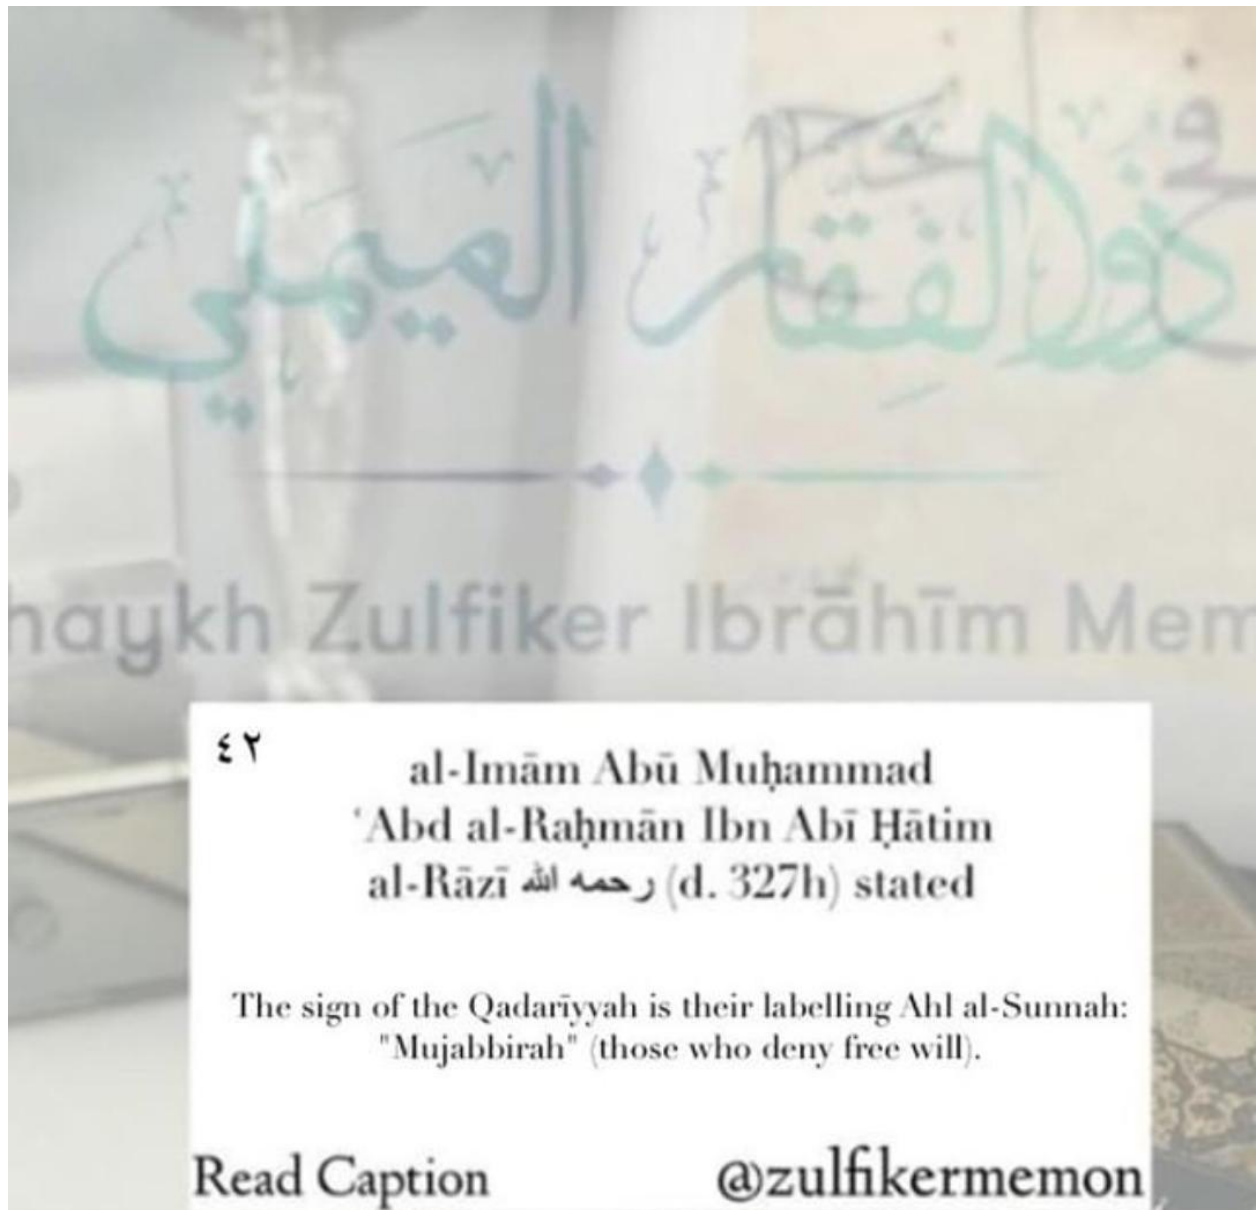 ذو الفقار الميمني
haykh Zulfiker Ibrāhīm Mem
٤٢
al-Imām Abū Muḥammad
ʿAbd al-Raḥmān Ibn Abī Ḥātim
al-Rāzī رحمه الله (d. 327h) stated
The sign of the Qadarīyyah is their labelling Ahl al-Sunnah:
"Mujabbirah" (those who deny free will).
Read Caption
@zulfikermemon